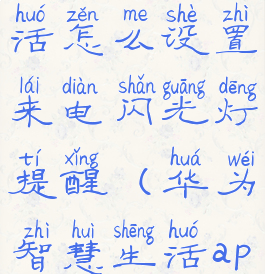 huó zěn me shè zhì
活怎么设置
lái diàn shǎn guāng dēng
来电闪光灯
tí xǐng huá wéi
提醒(华为
zhì huì shēng huó
智慧生活ap